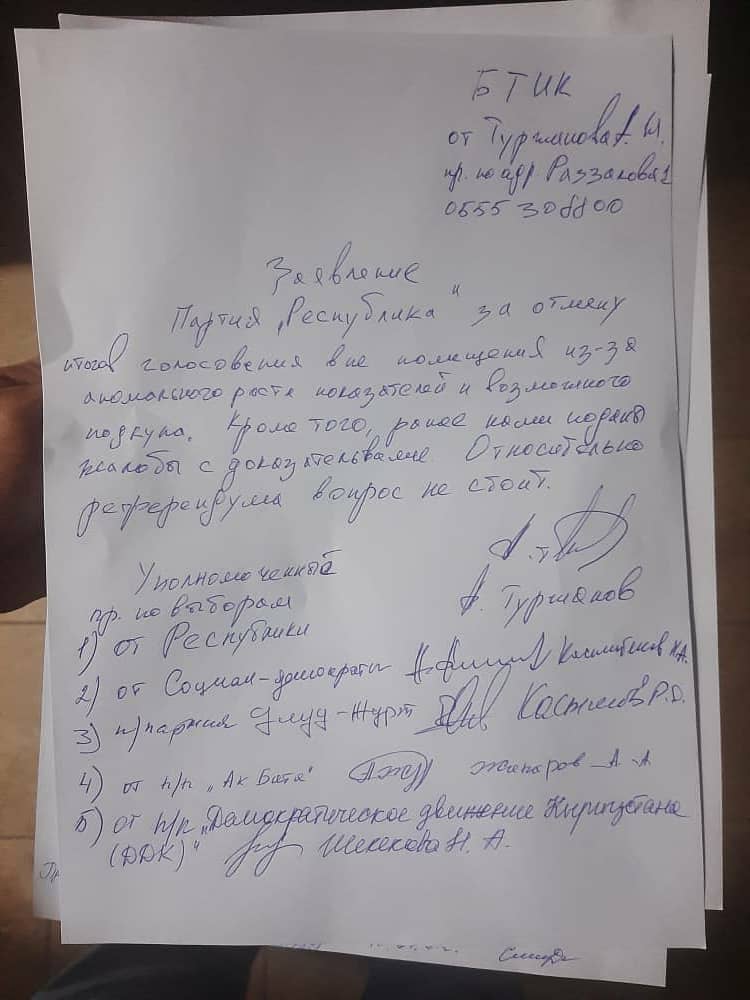 БТИК
от Турманова А. Н.
пр. по адр Раззакова 2
0555 308800
Заявление
Партия „Республика" за отмену
итогов голосования вне помещения из-за
аномального роста показателей и возможного
подкупа. Кроме того, ранее нами поданы
жалобы с доказательвами. Относительно
референдума вопрос не стоит.
Уполномоченный
пр. по выборам А. Турманов
1) от Республики
2) от Социал-демократы Н.А.
3) п/партия Улуу-Журт Р.D.
4) от п/п „Ак Бата" Жапаров А.А
5) от п/п „Демократическое движение Кыргызстана
(ДДК)" Шекекова Н. А.